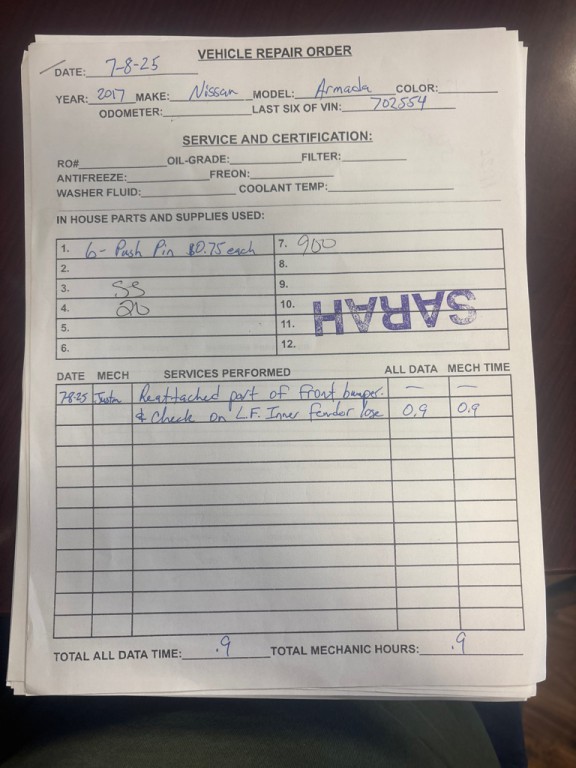 VEHICLE REPAIR ORDER
DATE: 7-8-25
YEAR: 2017 MAKE: Nissan MODEL: Armada COLOR:
ODOMETER: LAST SIX OF VIN: 702554
SERVICE AND CERTIFICATION:
RO# OIL-GRADE: FILTER:
ANTIFREEZE: FREON:
WASHER FLUID: COOLANT TEMP:
IN HOUSE PARTS AND SUPPLIES USED:
1. 6- Push Pin $0.75 each 7. 900
2. 8.
3. SS 9.
4. 20 10.
5. 11.
6. 12.
SARAH
DATE MECH SERVICES PERFORMED ALL DATA MECH TIME
7-8-25 Justin Reattached part of front bumper. — —
& Check on L.F. Inner fendor lose 0.9 0.9
TOTAL ALL DATA TIME: .9 TOTAL MECHANIC HOURS: .9